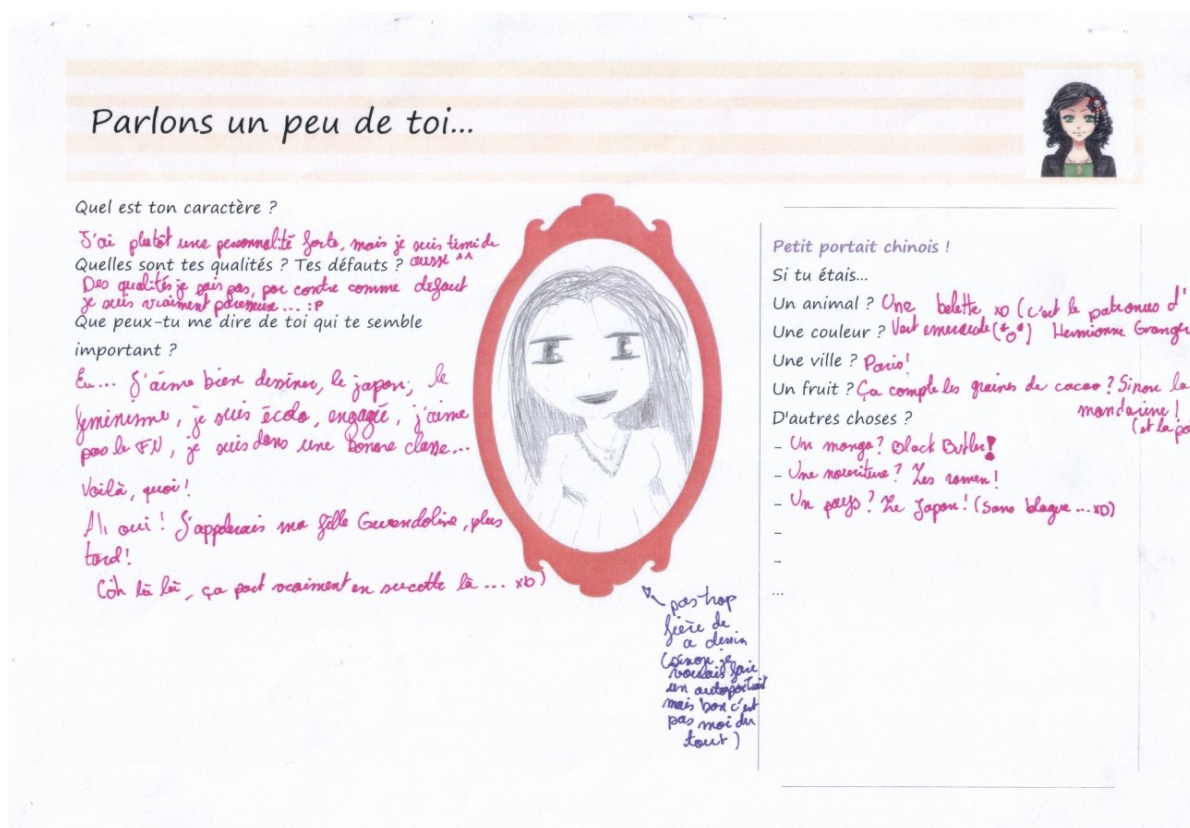 Parlons un peu de toi...
Quel est ton caractère ?
J'ai plutôt une personnalité forte, mais je suis timide
aussi ^^
Quelles sont tes qualités ? Tes défauts ?
Des qualités je sais pas, par contre comme défaut
je suis vraiment paresseuse... :P
Que peux-tu me dire de toi qui te semble
important ?
Eu... J'aime bien dessiner, le japon, le
feminisme, je suis écolo, engagée, j'aime
pas le FN, je suis dans une bonne classe...
Voilà, quoi!
Ah oui! J'appelerais ma fille Gwendoline, plus
tard!
(Oh là là, ça part vraiment en sucette là ... xD)
pas trop
fière de
a dessin
(sinon je
voulais faire
un autoportrait
mais bon c'est
pas moi du
tout)
Petit portait chinois !
Si tu étais...
Un animal ? Une belette xD (c'est le patronus d'
Hermionne Granger
Une couleur ? Vert emeraude (*o*)
Une ville ? Paris!
Un fruit ? Ça compte les graines de cacao? Sinon la
mandarine!
(et la
D'autres choses ?
- Un manga? Black Butler!
- Une nourriture? Les ramen!
- Un pays? Le Japon! (Sans blague ... xD)
-
-
...